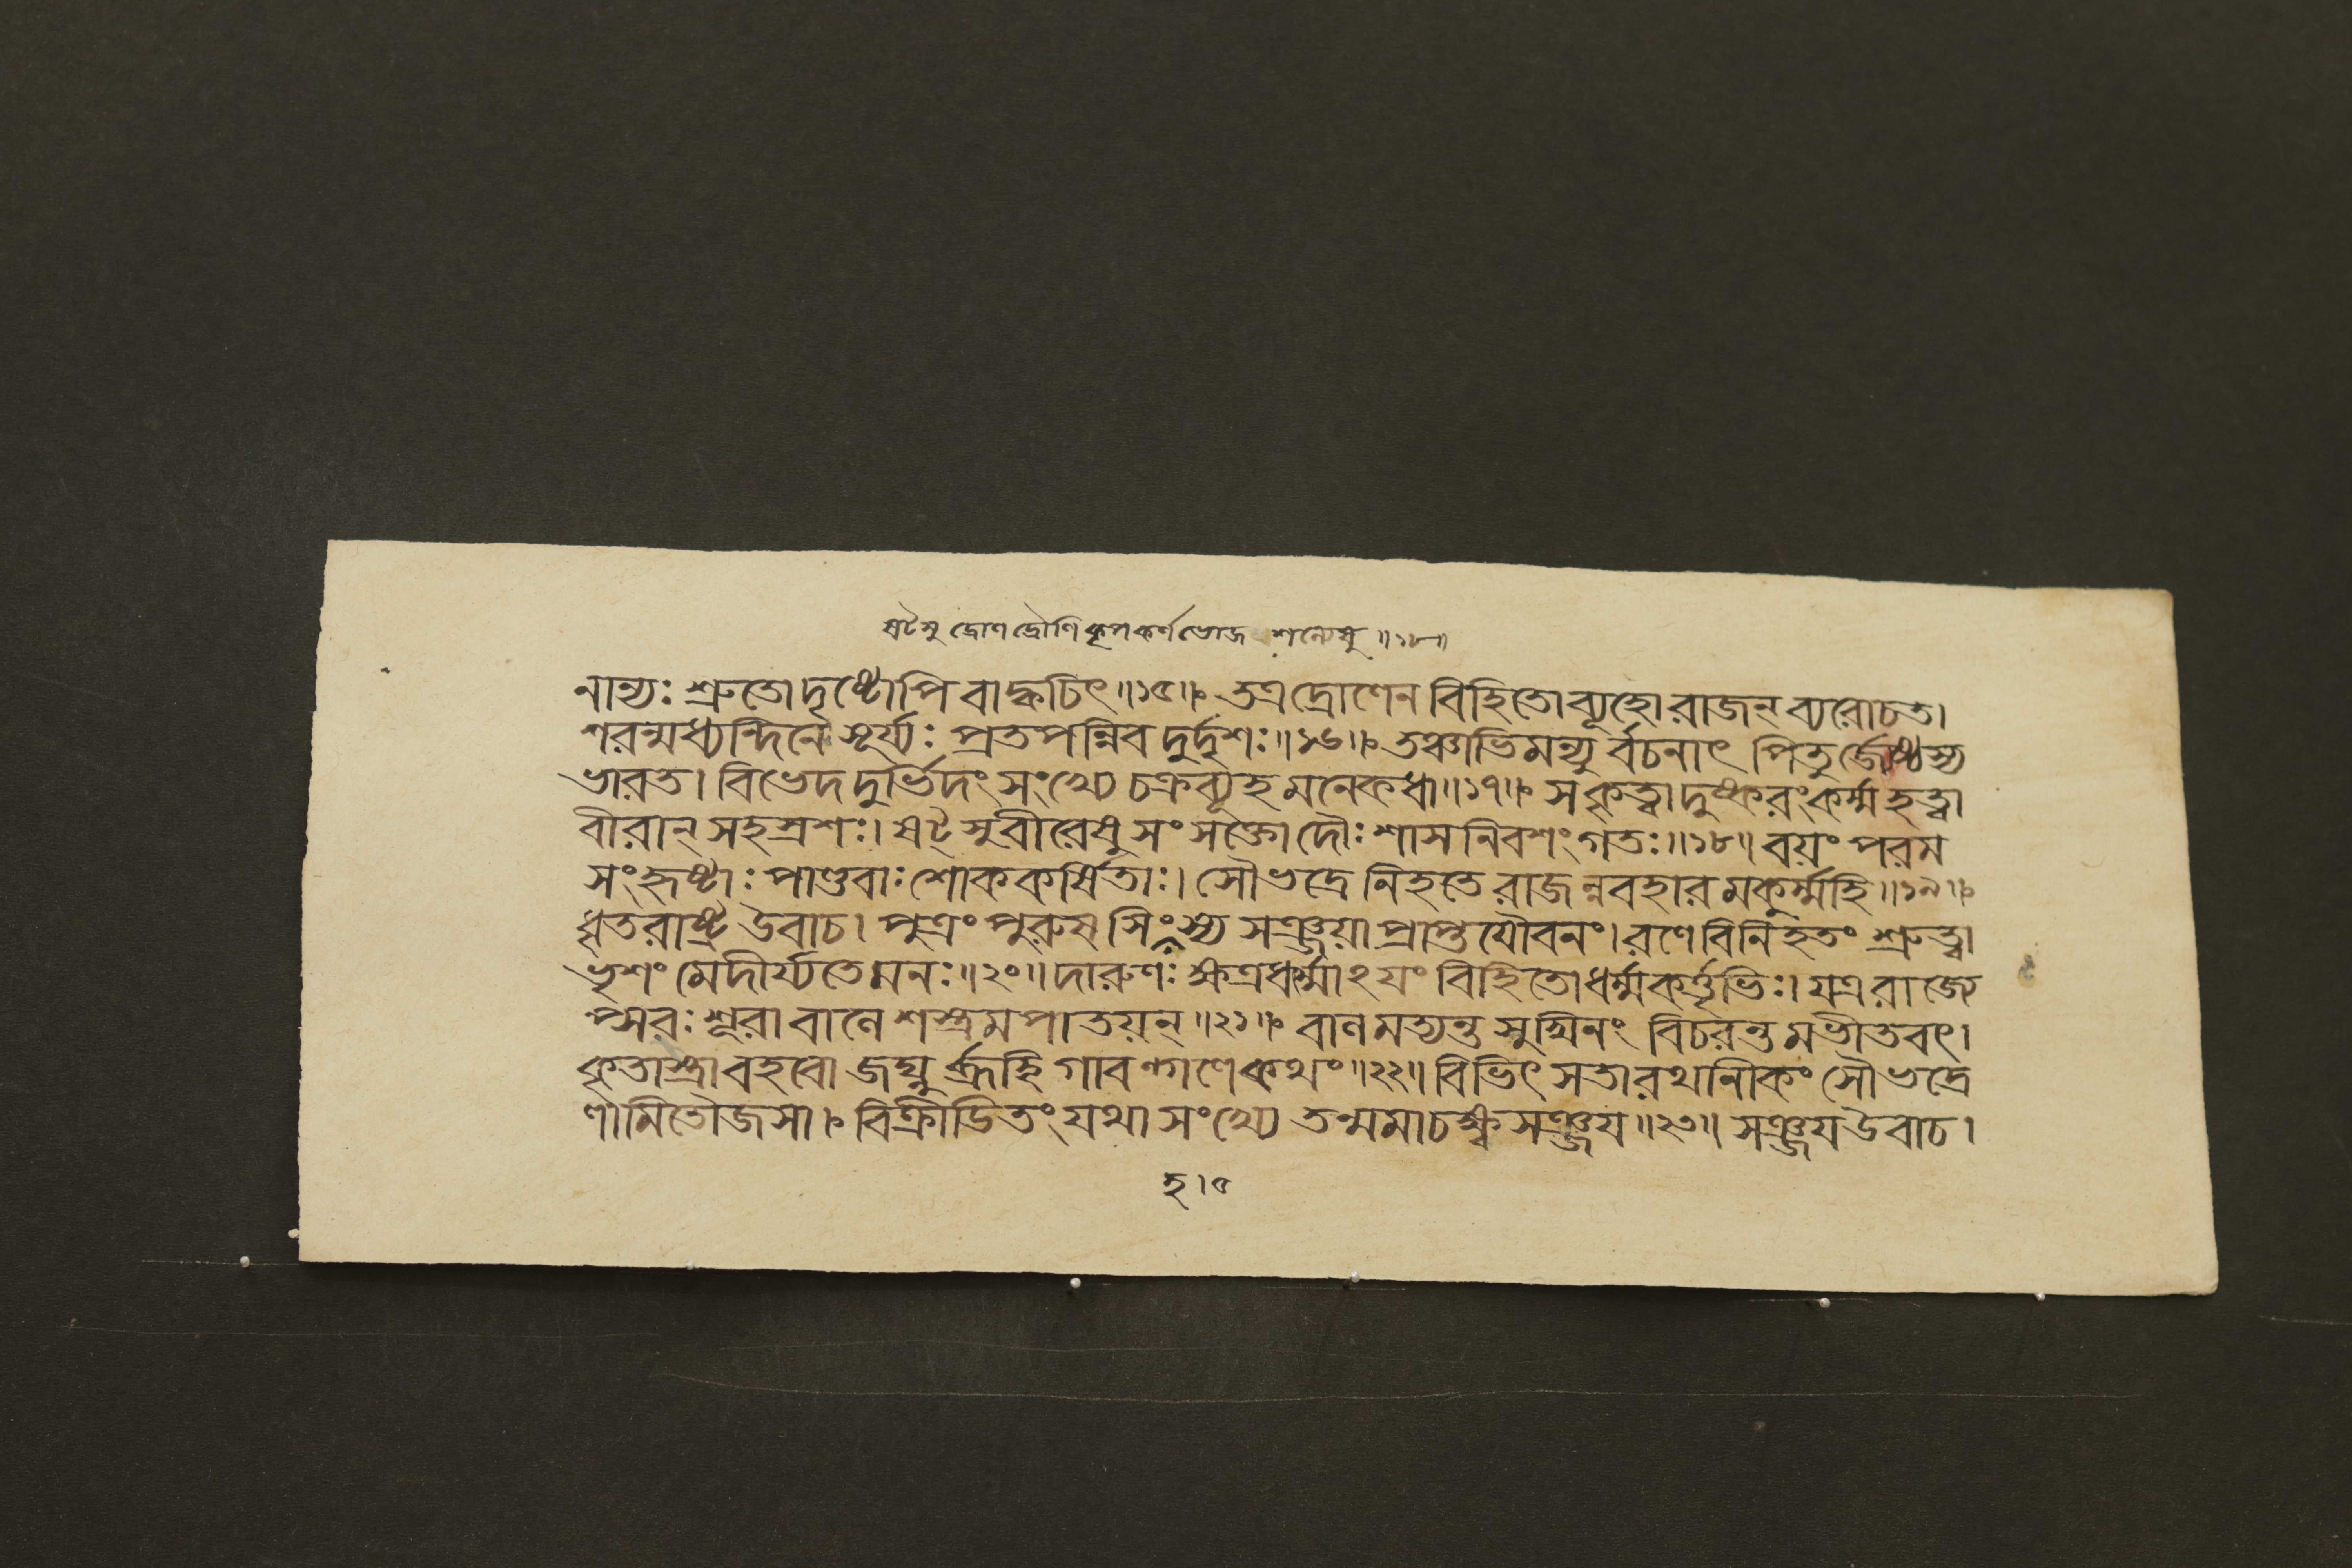 ষট্সু দ্রোণদ্রৌণিকৃপকর্ণভোজ শল্যেষু ॥১৮॥
নান্যঃ শ্রুতোদৃষ্টোপি বাক্বচিৎ॥১৫॥ তত্রদ্রোণেন বিহিতোব্যূহোরাজন্ ব্যরোচত।
শরন্মধ্যন্দিনে সূর্য্যঃ প্রতপন্নিব দুর্দ্দৃশঃ॥১৬॥ তঞ্চাভিমন্যুর্ব্বচনাৎ পিতুর্জ্যেষ্ঠস্য
ভারত। বিভেদদুর্ভিদং সংখ্যে চক্রব্যূহমনেকধা॥১৭॥ সকৃত্বাদুষ্করংকর্ম্মহত্বা
বীরান্ সহস্রশঃ। ষট্সুবীরেষুসংসক্তোদৌঃশাসনিবশংগতঃ॥১৮॥ বয়ং পরম
সংহৃষ্টাঃ পাণ্ডবাঃ শোককর্ষিতাঃ। সৌভদ্রেনিহতেরাজন্নবহারমকুর্ম্মহি॥১৯॥
ধৃতরাষ্ট্র উবাচ। পুত্রংপুরুষসিংহস্য সঞ্জয়াপ্রাপ্তযৌবনং। রণেবিনিহতং শ্রুত্বা
ভৃশং মেদীর্য্যতেমনঃ॥২০॥ দারুণঃ ক্ষত্রধর্ম্মাঽয়ং বিহিতোধর্ম্মকর্ত্তৃভিঃ। যত্ররাজ্যে
প্সবঃ শূরাবালেশস্ত্রমপাতয়ন্॥২১॥ বালমত্যন্তসুখিনং বিচরন্তমভীতবৎ।
কৃতাস্ত্রাবহবোজঘ্নুর্ব্রূহি গাবল্গণেকথং॥২২॥ বিভিৎসতারথানীকং সৌভদ্রে
ণামিতৌজসা। বিক্রীডিতং যথাসংখ্যে তন্মমাচক্ষ্বসঞ্জয়॥২৩॥ সঞ্জয়উবাচ।
হ।৫